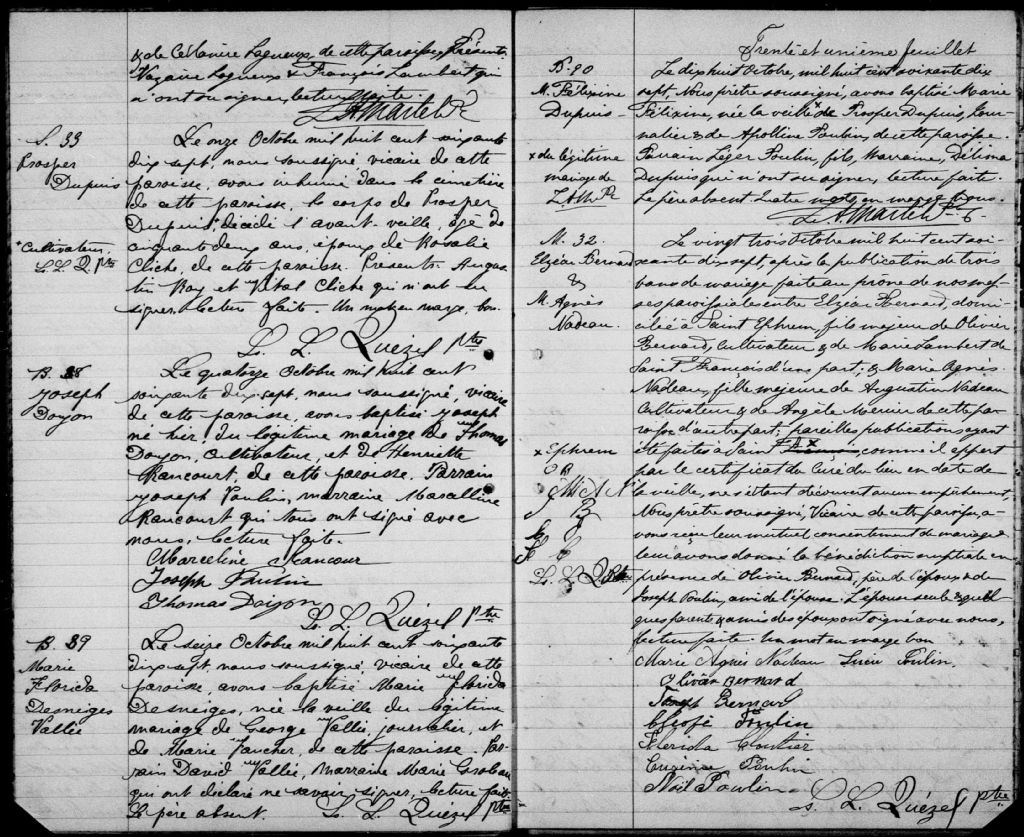 & de Célanire Lagueux, de cette paroisse, Présents
Nazaire Lagueux & François Lambert qui
n'ont su signer, lecture faite
S. 33
Prosper
Dupuis
*Cultivateur.
L. L. Q. Ptre
Le onze Octobre mil huit cent soixante
dix sept, nous soussigné vicaire de cette
paroisse, avons inhumé dans le cimetière
de cette paroisse, le corps de Prosper
Dupuis,* décédé l'avant-veille, âgé de
cinquante deux ans, époux de Rosalie
Cliche, de cette paroisse. Présents Augus-
tin Roy et Vital Cliche qui n'ont su
signer, lecture faite. Un mot en marge, bon.
Ls. L. Quézel Ptre
B. 88
Joseph
Doyon
Le quatorze Octobre mil huit cent
soixante dix-sept, nous soussigné, vicaire
de cette paroisse, avons baptisé Joseph
né hier, du légitime mariage de Thomas
Doyon, cultivateur, et de Henriette
Rancourt, de cette paroisse. Parrain
Joseph Poulin, marraine Marcelline
Rancourt qui tous ont signé avec
nous, lecture faite.
Marceline Rancour
Joseph Paulin
Thomas Doyon
Ls. L. Quézel Ptre
B. 89
Marie
Florida
Desneiges
Vallée
Le seize Octobre mil huit cent soixante
dix sept, nous soussigné, vicaire de cette
paroisse, avons baptisé Marie Florida
Desneiges, née la veille du légitime
mariage de George Vallée, journalier, et
de Marie Faucher, de cette paroisse. Par-
rain David Vallée, marraine Marie
qui ont déclaré ne savoir signer, lecture faite
Le père absent. Ls. L. Quézel Ptre
Trente et unième feuillet
B. 90
M. Félixine
Dupuis
x du légitime
mariage de
Le dix huit Octobre, mil huit cent soixante dix
sept, Nous prêtre soussigné, avons baptisé Marie
Félixine, née la veille x de Prosper Dupuis, Jour-
nalier & de Apolline Poulin, de cette paroisse.
Parrain Léger Poulin, fils, Marraine, Délima
Dupuis qui n'ont su signer, lecture faite.
Le père absent. Quatre mots en marge bons.
M. 32.
Elzéar Bernard
&
M. Agnès
Nadeau.
x Ephrem
O B
J B
L. L. Q. Ptre
Le vingt trois Octobre mil huit cent soi-
xante dix sept, après la publication de trois
bans de mariage faite au prône de nos mes-
ses paroissiales entre Elzéar Bernard, domi-
cilié à Saint Ephrem, fils majeur de Olivier
Bernard, Cultivateur & de Marie Lambert de
Saint François d'une part; & Marie Agnès
Nadeau, fille majeure de Augustin Nadeau
Cultivateur & de Angèle Mercier de cette pa-
roisse d'autre part; pareilles publications ayant
été faites à Saint x, comme il appert
par le certificat du Curé du lieu en date de
la veille, ne s'étant découvert aucun empêchement,
Nous prêtre soussigné, Vicaire de cette paroisse, a-
vons reçu leur mutuel consentement de mariage &
leur avons donné la bénédiction nuptiale en
présence de Olivier Bernard, père de l'époux & de
Joseph Poulin, ami de l'épouse. L'épouse seule & quel-
ques parents & amis des époux ont signé avec nous,
lecture faite. Un mot en marge bon
Marie Agnès Nadeau Poulin.
Olivier Bernard
Joseph Bernard
Cléofé Poulin
Cloutier
Eugénie Poulin
Noël Poulin
Ls. L. Quézel Ptre